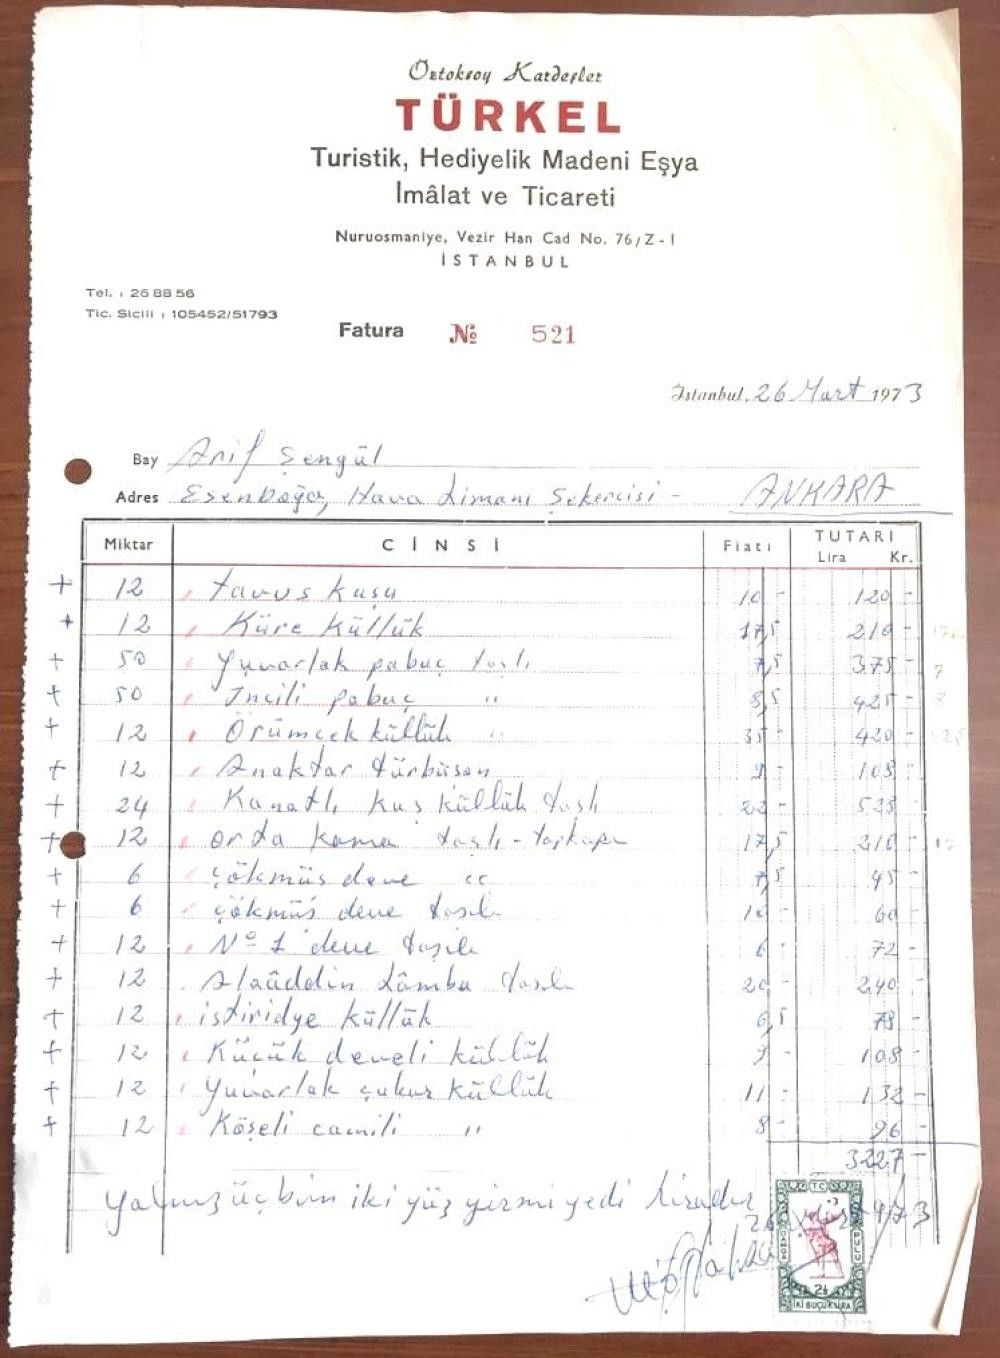 Öztoksoy Kardeşler
TÜRKEL
Turistik, Hediyelik Madeni Eşya
İmâlat ve Ticareti
Nuruosmaniye, Vezir Han Cad No. 76/Z-1
İSTANBUL
Tel. : 26 88 56
Tic. Sicili : 105452/51793
Fatura № 521
İstanbul, 26 Mart 1973
Bay Arif Şengül
Adres Esenboğa, Hava Limanı Şekercisi - ANKARA
Miktar CİNSİ Fiatı TUTARI
Lira Kr.
+ 12 tavus kuşu 10 - 120 -
+ 12 Küre küllük 17,5 210 -
+ 50 Yuvarlak pabuç taşlı 7,5 375 -
+ 50 İncili pabuç " 8,5 425 -
+ 12 Örümcek küllük " 35 - 420 -
+ 12 Anaktar türbüşon 9 - 108 -
+ 24 Kanatlı kuş küllük taşlı 22 - 528 -
+ 12 orta kama taşlı - topkapı 17,5 210 -
+ 6 çökmüş deve " 7,5 45 -
+ 6 çökmüş deve taşlı 10 - 60 -
+ 12 Nº 1 deve taşlı 6 - 72 -
+ 12 Alaâddin Lâmba taşlı 20 - 240 -
+ 12 istiridye küllük 6,5 78 -
+ 12 Küçük develi küllük 9 - 108 -
+ 12 Yuvarlak çukur küllük 11 - 132 -
+ 12 Köşeli camili " 8 - 96 -
3227 -
Yalnız üç bin iki yüz yirmi yedi liradır
TC
DAMGA PULU
2½
İKİ BUÇUK LİRA